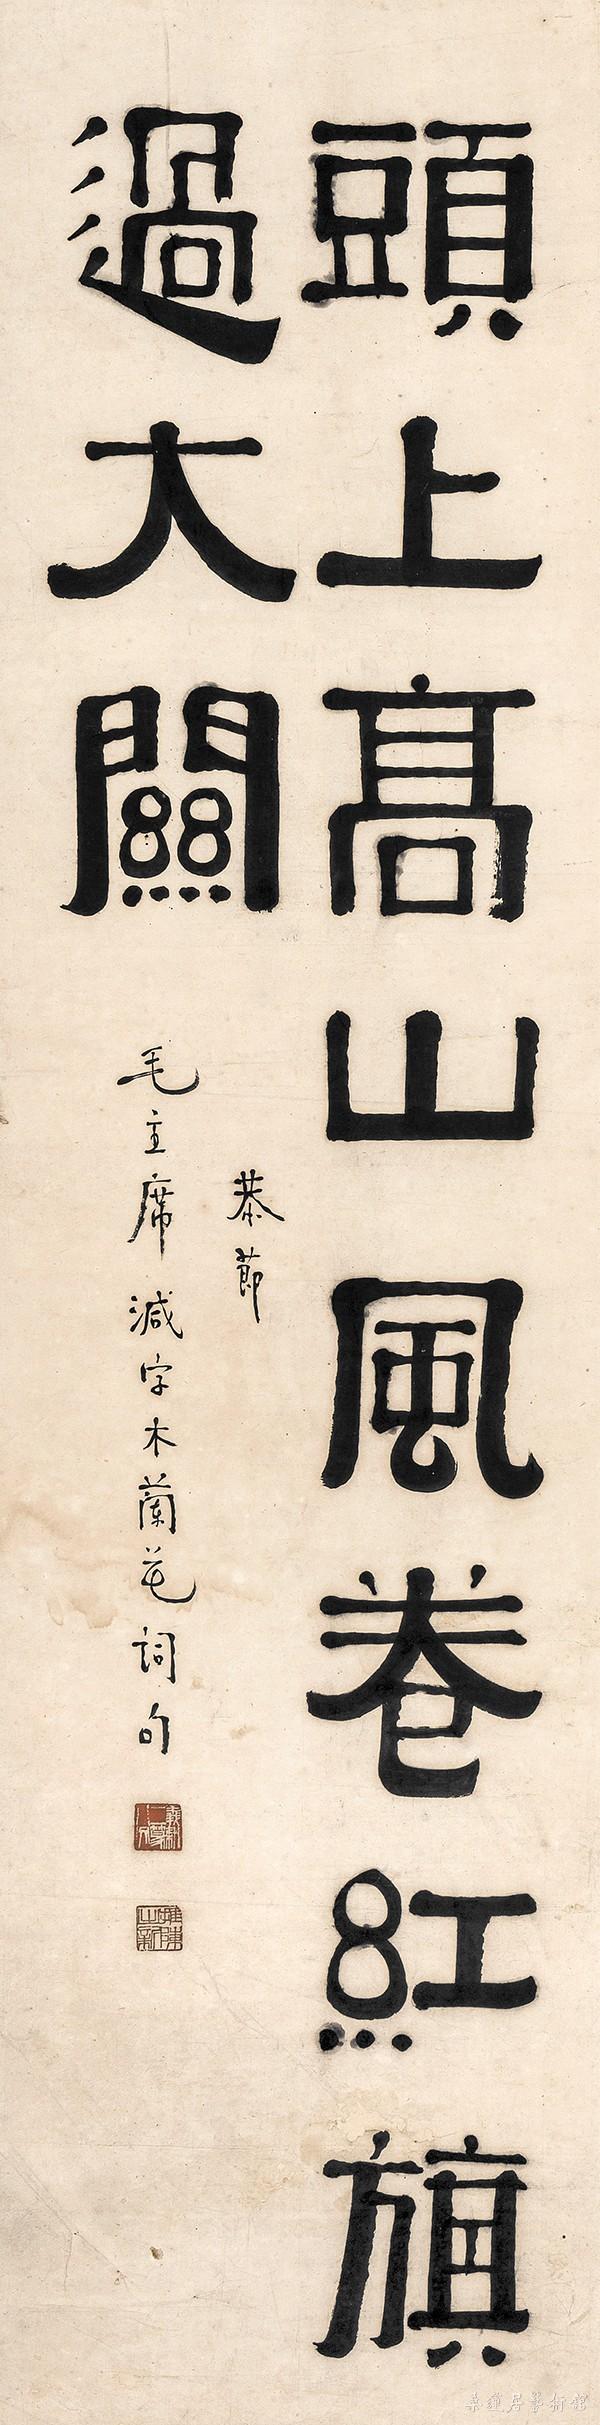 頭上高山風卷紅旗
過大關
恭節
毛主席減字木蘭花詞句